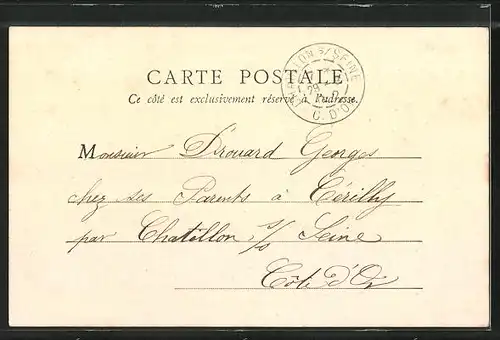 CHATILLON S/ SEINE
29
C. D'OR
CARTE POSTALE
Ce côté est exclusivement réservé à l'adresse.
Monsieur Drouard Georges
chez ses Parents à Cérilly
par Chatillon s/s Seine
Côte d'Or